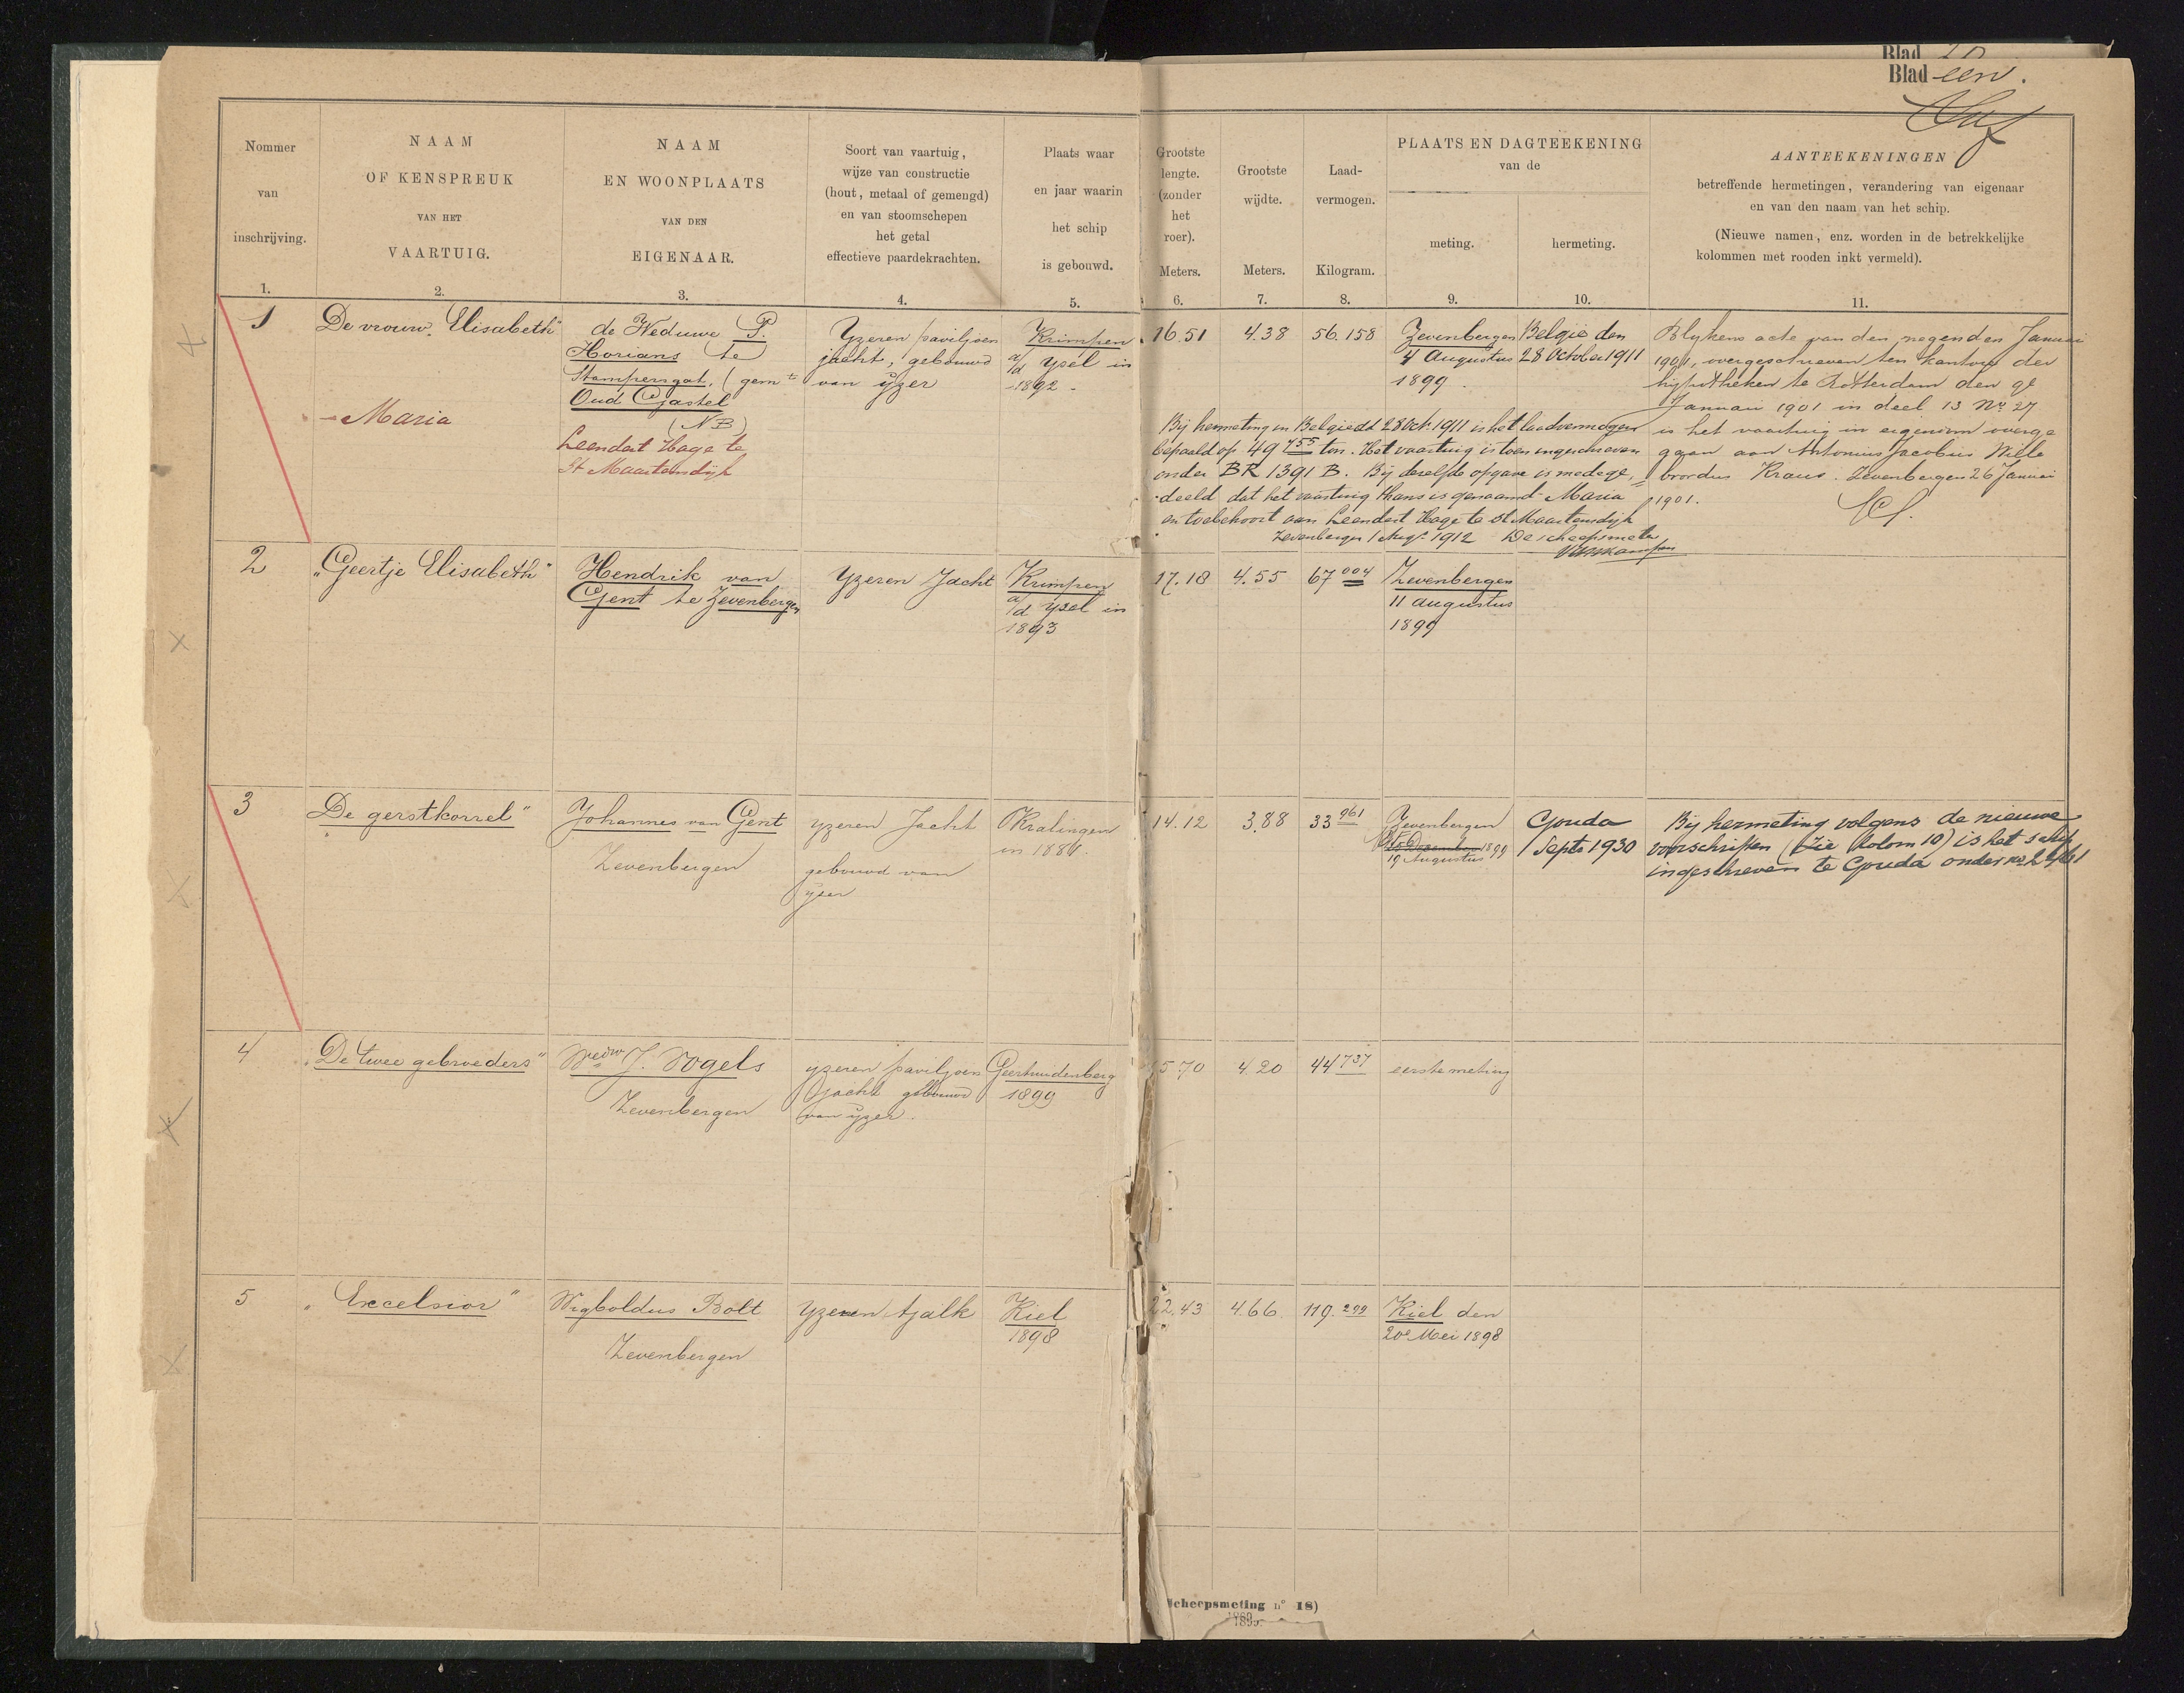 Blad 20
Blad een.
Nommer
van
inschrijving.
1.
NAAM
OF KENSPREUK
VAN HET
VAARTUIG.
2.
NAAM
EN WOONPLAATS
VAN DEN
EIGENAAR.
3.
Soort van vaartuig,
wijze van constructie
(hout, metaal of gemengd)
en van stoomschepen
het getal
effectieve paardekrachten.
4.
Plaats waar
en jaar waarin
het schip
is gebouwd.
5.
Grootste
lengte.
(zonder
het
roer).
Meters.
6.
Grootste
wijdte.
Meters.
7.
Laad-
vermogen.
Kilogram.
8.
PLAATS EN DAGTEEKENING
van de
meting.
9.
hermeting.
10.
AANTEEKENINGEN
betreffende hermetingen, verandering van eigenaar
en van den naam van het schip.
(Nieuwe namen, enz. worden in de betrekkelijke
kolommen met rooden inkt vermeld).
11.
1
De vrouw Elisabeth"
- Maria
de Weduwe P.
Horians te
Stampersgat, (gemte
Oud Gastel
(NB)
Leendert Hage te
St Maartensdijk
Yzeren paviljoen
jacht, gebouwd
van ijzer
Krimpen
a/d Ysel in
1892.
16.51
4.38
56.158
Zevenbergen
4 Augustus
1899.
België den
28 October 1911
Blykens acte van den negenden Januari
1901, overgeschreven ten kantore der
hypotheken te Rotterdam den 9e
Januari 1901 in deel 13 No 27
is het vaartuig in eigendom overge
gaan aan Antonius Jacobus Wille
brordus Kraus. Zevenbergen 26 Januari
1901.
Bij hermeting in België dd 28 Oct. 1911 is het laadvermogen
bepaald op 49 755 ton. Het vaartuig is toen ingeschreven
onder BR 1391 B. Bij dezelfde opgave is medege=
deeld dat het vaartuig thans is genaamd Maria
en toebehoort aan Leendert Hage te St Maartensdijk
Zevenbergen 1 Aug. 1912 De scheepsmeter
2
"Geertje Elisabeth"
Hendrik van
Gent te Zevenbergen
Yzeren Jacht
Krimpen
a/d Ysel in
1893
17.18
4.55
67 004
Zevenbergen
11 augustus
1899
3
"De gerstkorrel"
Johannes van Gent
Zevenbergen
yzeren Jacht
gebouwd van
ijzer
Kralingen
in 1881.
14.12
3.88
33 961
Zevenbergen
December 1899
19 Augustus
Gouda
1 Septr 1930
Bij hermeting volgens de nieuwe
voorschriften (zie kolom 10) is het schip
ingeschreven te Gouda onder no 2461
4
"De twee gebroeders"
Wedw J. Vogels
Zevenbergen
yzeren paviljoen
jacht gebouwd
van ijzer.
Geertruidenberg
1899
15.70
4.20
44 737
eerste meting
5
"Excelsior"
Wigboldus Bolt
Zevenbergen
Yzeren tjalk
Kiel
1898
22.43
4.66.
119.299
Kiel den
20e Mei 1898
Scheepsmeting n° 18)
1899.